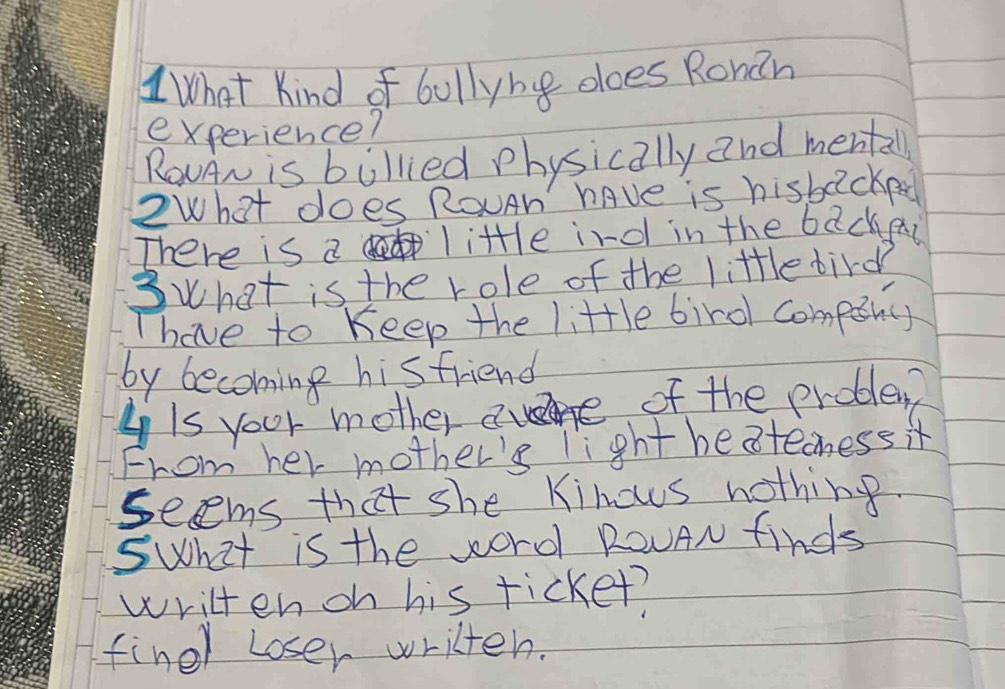 1 What Kind of bullyng does Ronan
experience?
RoWAN is bullied Physically and mentall
2 What does RowAn hAve is hisbackpad
There is a little ird in the backpai
3 What is the role of the little bird
I have to Keep the little bird compañy
by becoming his friend
4 Is your mother of the problem?
From her mother's light heateaness it
Seems that she Kinows nothing.
5 What is the word RoWAN finds
written on his ticket?
find Loser written.